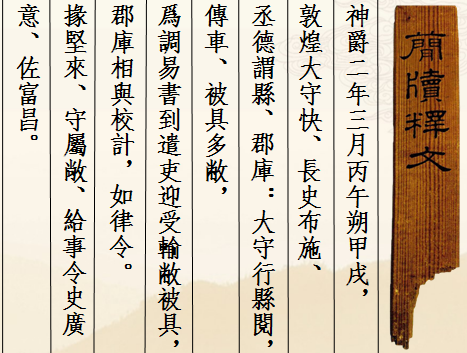 簡牘釋文
神爵二年三月丙午朔甲戌，
敦煌大守快、長史布施、
丞德謂縣、郡庫：大守行縣閱，
傳車、被具多敝，
爲調易書到遣吏迎受輸敝被具，
郡庫相與校計，如律令。
掾堅來、守屬敞、給事令史廣
意、佐富昌。